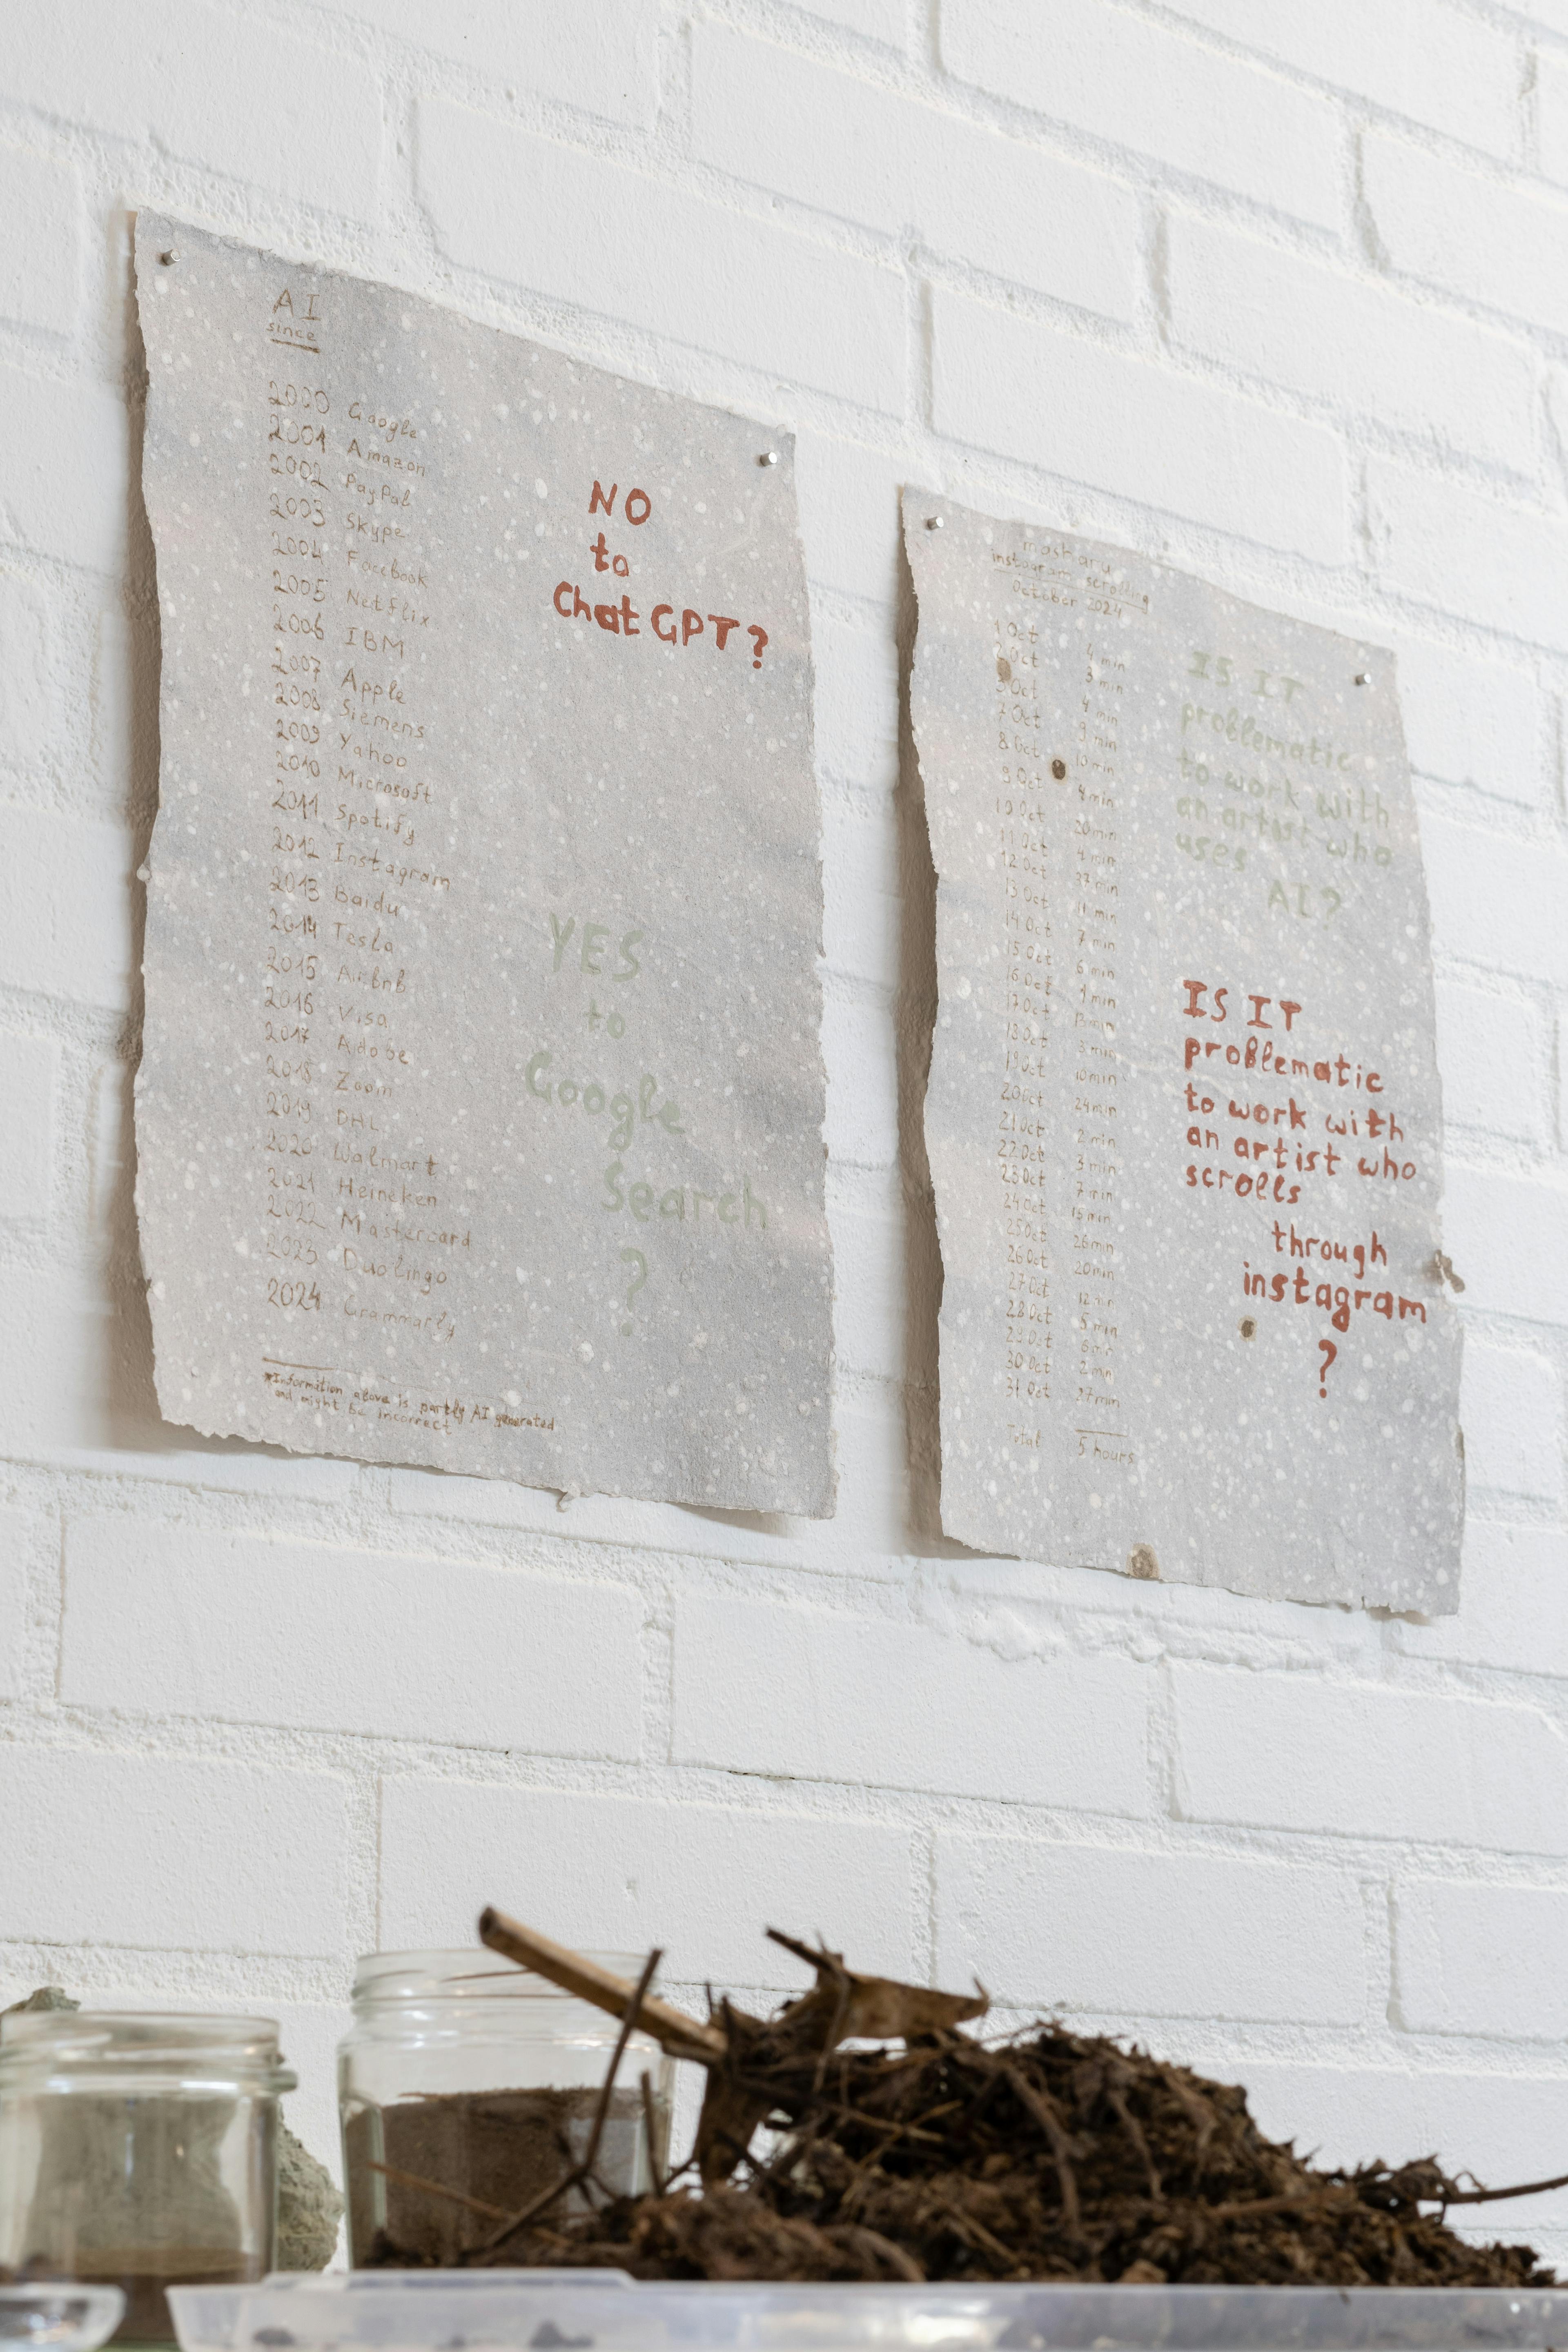 AI
since
2000 Google
2001 Amazon
2002 PayPal
2003 Skype
2004 Facebook
2005 Netflix
2006 IBM
2007 Apple
2008 Siemens
2009 Yahoo
2010 Microsoft
2011 Spotify
2012 Instagram
2013 Baidu
2014 Tesla
2015 Airbnb
2016 Visa
2017 Adobe
2018 Zoom
2019 DHL
2020 Walmart
2021 Heineken
2022 Mastercard
2023 Duolingo
2024 Grammarly
*Information above is partly AI generated
and might be incorrect
NO
to
ChatGPT?
YES
to
Google
Search
?
instagram scrolling
October 2024
1 Oct 4 min
2 Oct 3 min
3 Oct 4 min
7 Oct 9 min
8 Oct 10 min
9 Oct 4 min
10 Oct 20 min
11 Oct 4 min
12 Oct 37 min
13 Oct 11 min
14 Oct 7 min
15 Oct 6 min
16 Oct 1 min
17 Oct 13 min
18 Oct 3 min
19 Oct 10 min
20 Oct 24 min
21 Oct 2 min
22 Oct 3 min
23 Oct 7 min
24 Oct 15 min
25 Oct 26 min
26 Oct 20 min
27 Oct 12 min
28 Oct 5 min
29 Oct 6 min
30 Oct 2 min
31 Oct 27 min
Total 5 hours
IS IT
problematic
to work with
an artist who
uses
AI?
IS IT
problematic
to work with
an artist who
scrolls
through
instagram
?